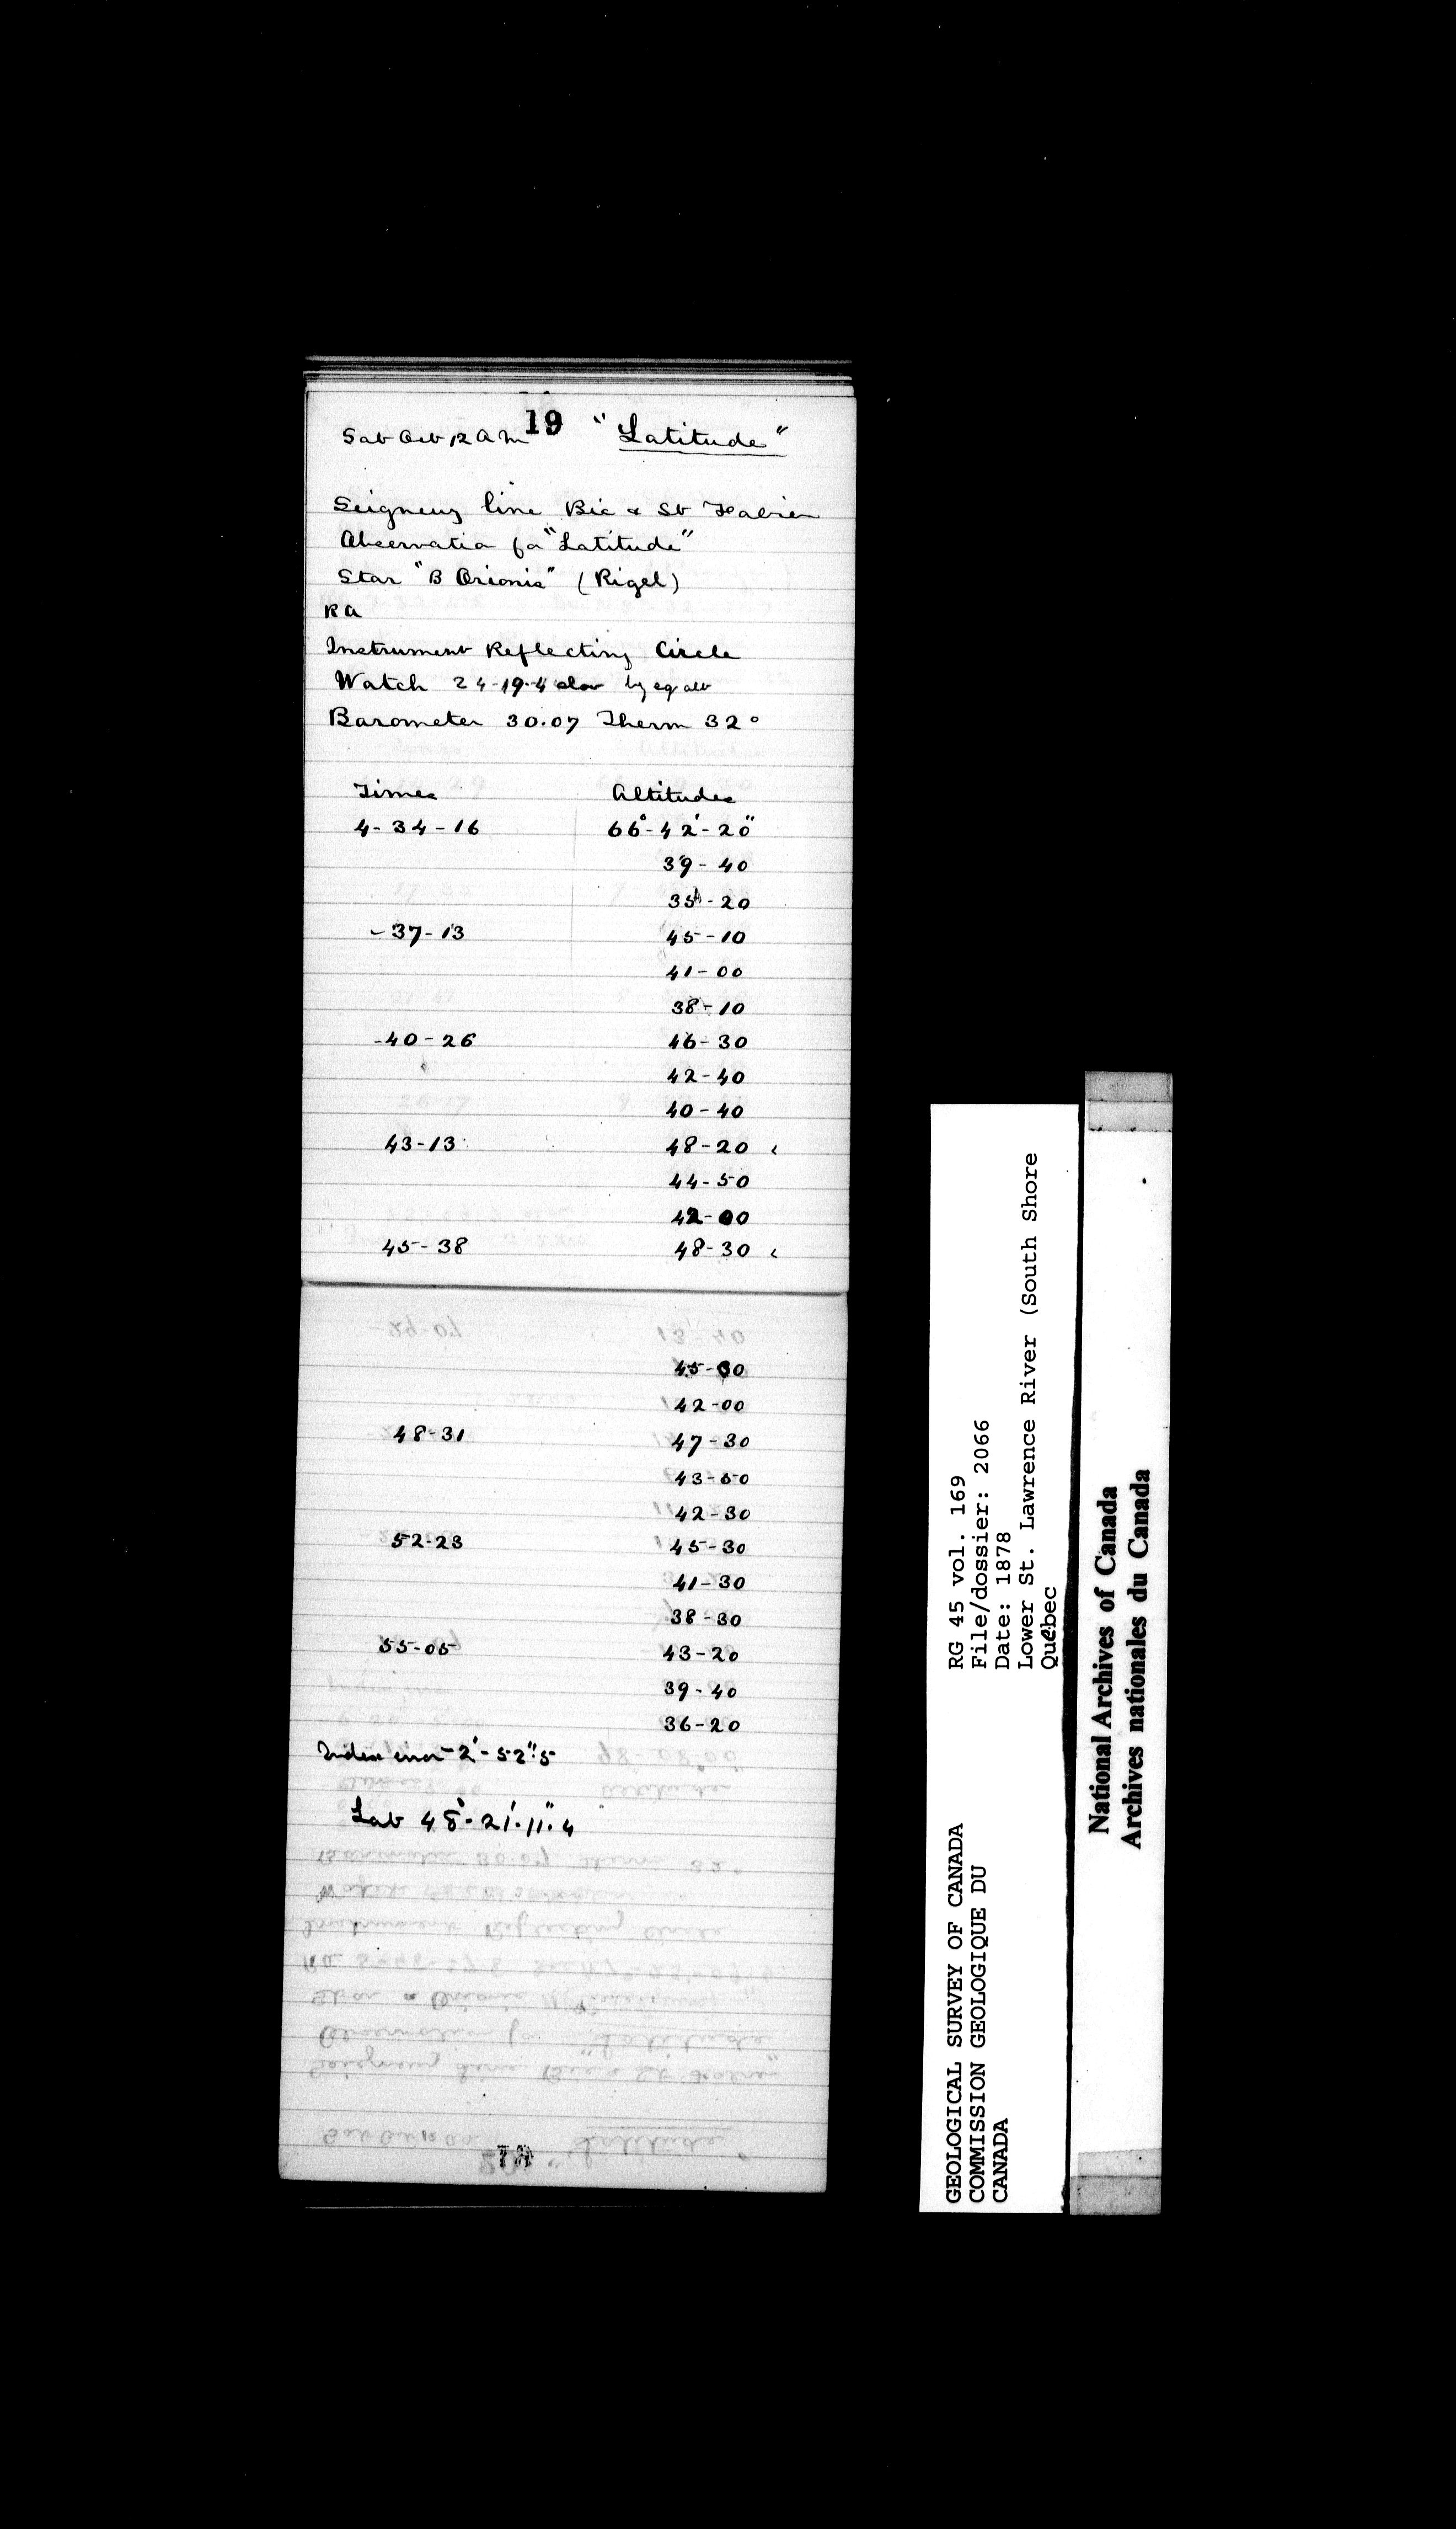 19
Sat Oct 12 A M "Latitude"
Seigneury line Bic & St Fabien
Observation for "Latitude"
Star "B Orionis" (Rigel)
R A
Instrument Reflecting Circle
Watch 24-19.4 slow by eq alt
Barometer 30.07 Therm 32°
Times Altitudes
4-34-16 66°-42'-20"
39-40
35-20
-37-13 45-10
41-00
38-10
-40-26 46-30
42-40
40-40
43-13 48-20
44-50
42-00
45-38 48-30
45-30
42-00
48-31 47-30
43-50
42-30
52-23 45-30
41-30
38-30
55-05 43-20
39-40
36-20
Index error - 2'-52".5
Lat 48°-21'-11".4
GEOLOGICAL SURVEY OF CANADA
COMMISSION GEOLOGIQUE DU
CANADA
RG 45 vol. 169
File/dossier: 2066
Date: 1878
Lower St. Lawrence River (South Shore
Québec
National Archives of Canada
Archives nationales du Canada